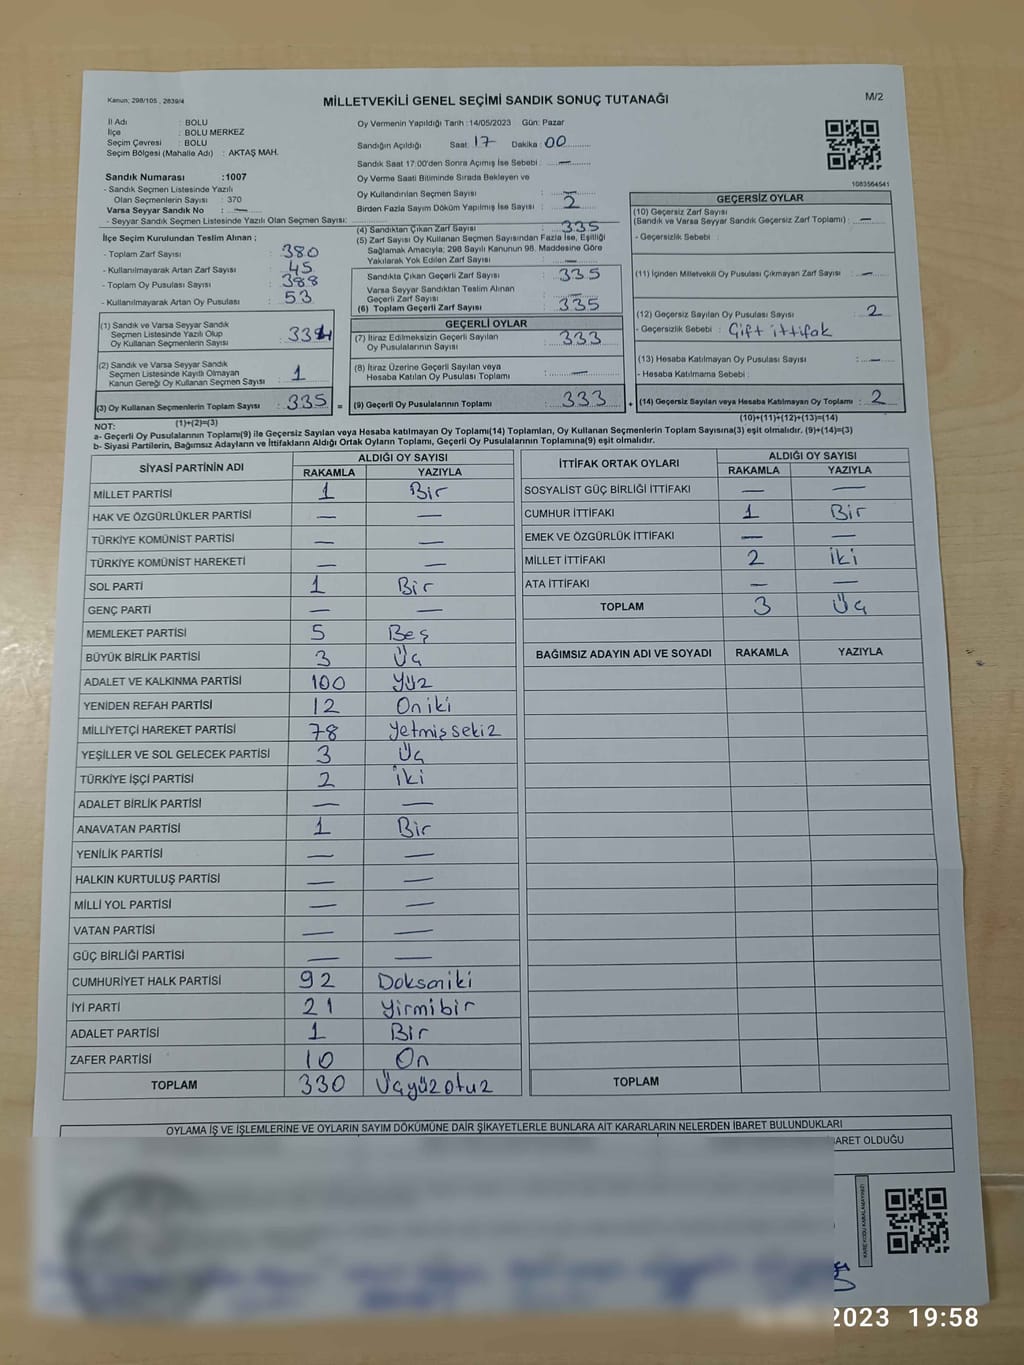 Kanun; 298/105 , 2839/4
MİLLETVEKİLİ GENEL SEÇİMİ SANDIK SONUÇ TUTANAĞI
M/2
İl Adı : BOLU
İlçe : BOLU MERKEZ
Seçim Çevresi : BOLU
Seçim Bölgesi (Mahalle Adı) : AKTAŞ MAH.
Sandık Numarası :1007
- Sandık Seçmen Listesinde Yazılı
Olan Seçmenlerin Sayısı : 370
Varsa Seyyar Sandık No : —
- Seyyar Seçmen Listesinde Yazılı Olan Seçmen Sayısı:
İlçe Seçim Kurulundan Teslim Alınan ;
- Toplam Zarf Sayısı : 380
- Kullanılmayarak Artan Zarf Sayısı : 45
- Toplam Oy Pusulası Sayısı : 388
- Kullanılmayarak Artan Oy Pusulası : 53
(1) Sandık ve Varsa Seyyar Sandık
Seçmen Listesinde Yazılı Olup
Oy Kullanan Seçmenlerin Sayısı : 334
(2) Sandık ve Varsa Seyyar Sandık
Seçmen Listesinde Kayıtlı Olmayan
Kanun Gereği Oy Kullanan Seçmen Sayısı : 1
(3) Oy Kullanan Seçmenlerin Toplam Sayısı : 335 =
(1)+(2)=(3)
Oy Vermenin Yapıldığı Tarih :14/05/2023 Gün: Pazar
Sandığın Açıldığı Saat: 17 Dakika: 00
Sandık Saat 17:00'den Sonra Açımış İse Sebebi : —
Oy Verme Saati Bitiminde Sırada Bekleyen ve
Oy Kullandırılan Seçmen Sayısı : —
Birden Fazla Sayım Döküm Yapılmış İse Sayısı : 2
(4) Sandıktan Çıkan Zarf Sayısı : 335
(5) Zarf Sayısı Oy Kullanan Seçmen Sayısından Fazla İse, Eşitliği
Sağlamak Amacıyla; 298 Sayılı Kanunun 98. Maddesine Göre
Yakılarak Yok Edilen Zarf Sayısı : —
Sandıkta Çıkan Geçerli Zarf Sayısı : 335
Varsa Seyyar Sandıktan Teslim Alınan
Geçerli Zarf Sayısı : —
(6) Toplam Geçerli Zarf Sayısı : 335
GEÇERLİ OYLAR
(7) İtiraz Edilmeksizin Geçerli Sayılan
Oy Pusulalarının Sayısı : 333
(8) İtiraz Üzerine Geçerli Sayılan veya
Hesaba Katılan Oy Pusulası Toplamı : —
(9) Geçerli Oy Pusulalarının Toplamı : 333 +
1083564541
GEÇERSİZ OYLAR
(10) Geçersiz Zarf Sayısı
(Sandık ve Varsa Seyyar Sandık Geçersiz Zarf Toplamı) : —
- Geçersizlik Sebebi :
(11) İçinden Milletvekil Oy Pusulası Çıkmayan Zarf Sayısı : —
(12) Geçersiz Sayılan Oy Pusulası Sayısı : 2
- Geçersizlik Sebebi : Çift ittifak
(13) Hesaba Katılmayan Oy Pusulası Sayısı : —
- Hesaba Katılmama Sebebi :
(14) Geçersiz Sayılan veya Hesaba Katılmayan Oy Toplamı : 2
(10)+(11)+(12)+(13)=(14)
NOT:
a- Geçerli Oy Pusulalarının Toplamı(9) ile Geçersiz Sayılan veya Hesaba katılmayan Oy Toplamı(14) Toplamları, Oy Kullanan Seçmenlerin Toplam Sayısına(3) eşit olmalıdır. (9)+(14)=(3)
b- Siyasi Partilerin, Bağımsız Adayların ve İttifakların Aldığı Ortak Oyların Toplamı, Geçerli Oy Pusulalarının Toplamına(9) eşit olmalıdır.
SİYASİ PARTİNİN ADI ALDIĞI OY SAYISI
RAKAMLA YAZIYLA
MİLLET PARTİSİ 1 Bir
HAK VE ÖZGÜRLÜKLER PARTİSİ — —
TÜRKİYE KOMÜNİST PARTİSİ — —
TÜRKİYE KOMÜNİST HAREKETİ — —
SOL PARTİ 1 Bir
GENÇ PARTİ — —
MEMLEKET PARTİSİ 5 Beş
BÜYÜK BİRLİK PARTİSİ 3 Üç
ADALET VE KALKINMA PARTİSİ 100 Yüz
YENİDEN REFAH PARTİSİ 12 Oniki
MİLLİYETÇİ HAREKET PARTİSİ 78 Yetmişsekiz
YEŞİLLER VE SOL GELECEK PARTİSİ 3 Üç
TÜRKİYE İŞÇİ PARTİSİ 2 İki
ADALET BİRLİK PARTİSİ — —
ANAVATAN PARTİSİ 1 Bir
YENİLİK PARTİSİ — —
HALKIN KURTULUŞ PARTİSİ — —
MİLLİ YOL PARTİSİ — —
VATAN PARTİSİ — —
GÜÇ BİRLİĞİ PARTİSİ — —
CUMHURİYET HALK PARTİSİ 92 Doksaniki
İYİ PARTİ 21 Yirmibir
ADALET PARTİSİ 1 Bir
ZAFER PARTİSİ 10 On
TOPLAM 330 Üçyüzotuz
İTTİFAK ORTAK OYLARI ALDIĞI OY SAYISI
RAKAMLA YAZIYLA
SOSYALİST GÜÇ BİRLİĞİ İTTİFAKI — —
CUMHUR İTTİFAKI 1 Bir
EMEK VE ÖZGÜRLÜK İTTİFAKI — —
MİLLET İTTİFAKI 2 İki
ATA İTTİFAKI — —
TOPLAM 3 Üç
BAĞIMSIZ ADAYIN ADI VE SOYADI RAKAMLA YAZIYLA
TOPLAM
OYLAMA İŞ VE İŞLEMLERİNE VE OYLARIN SAYIM DÖKÜMÜNE DAİR ŞİKAYETLERLE BUNLARA AİT KARARLARIN NELERDEN İBARET BULUNDUKLARI
BARET OLDUĞU
KAREKODU KARALAMAYINIZ!
2023 19:58